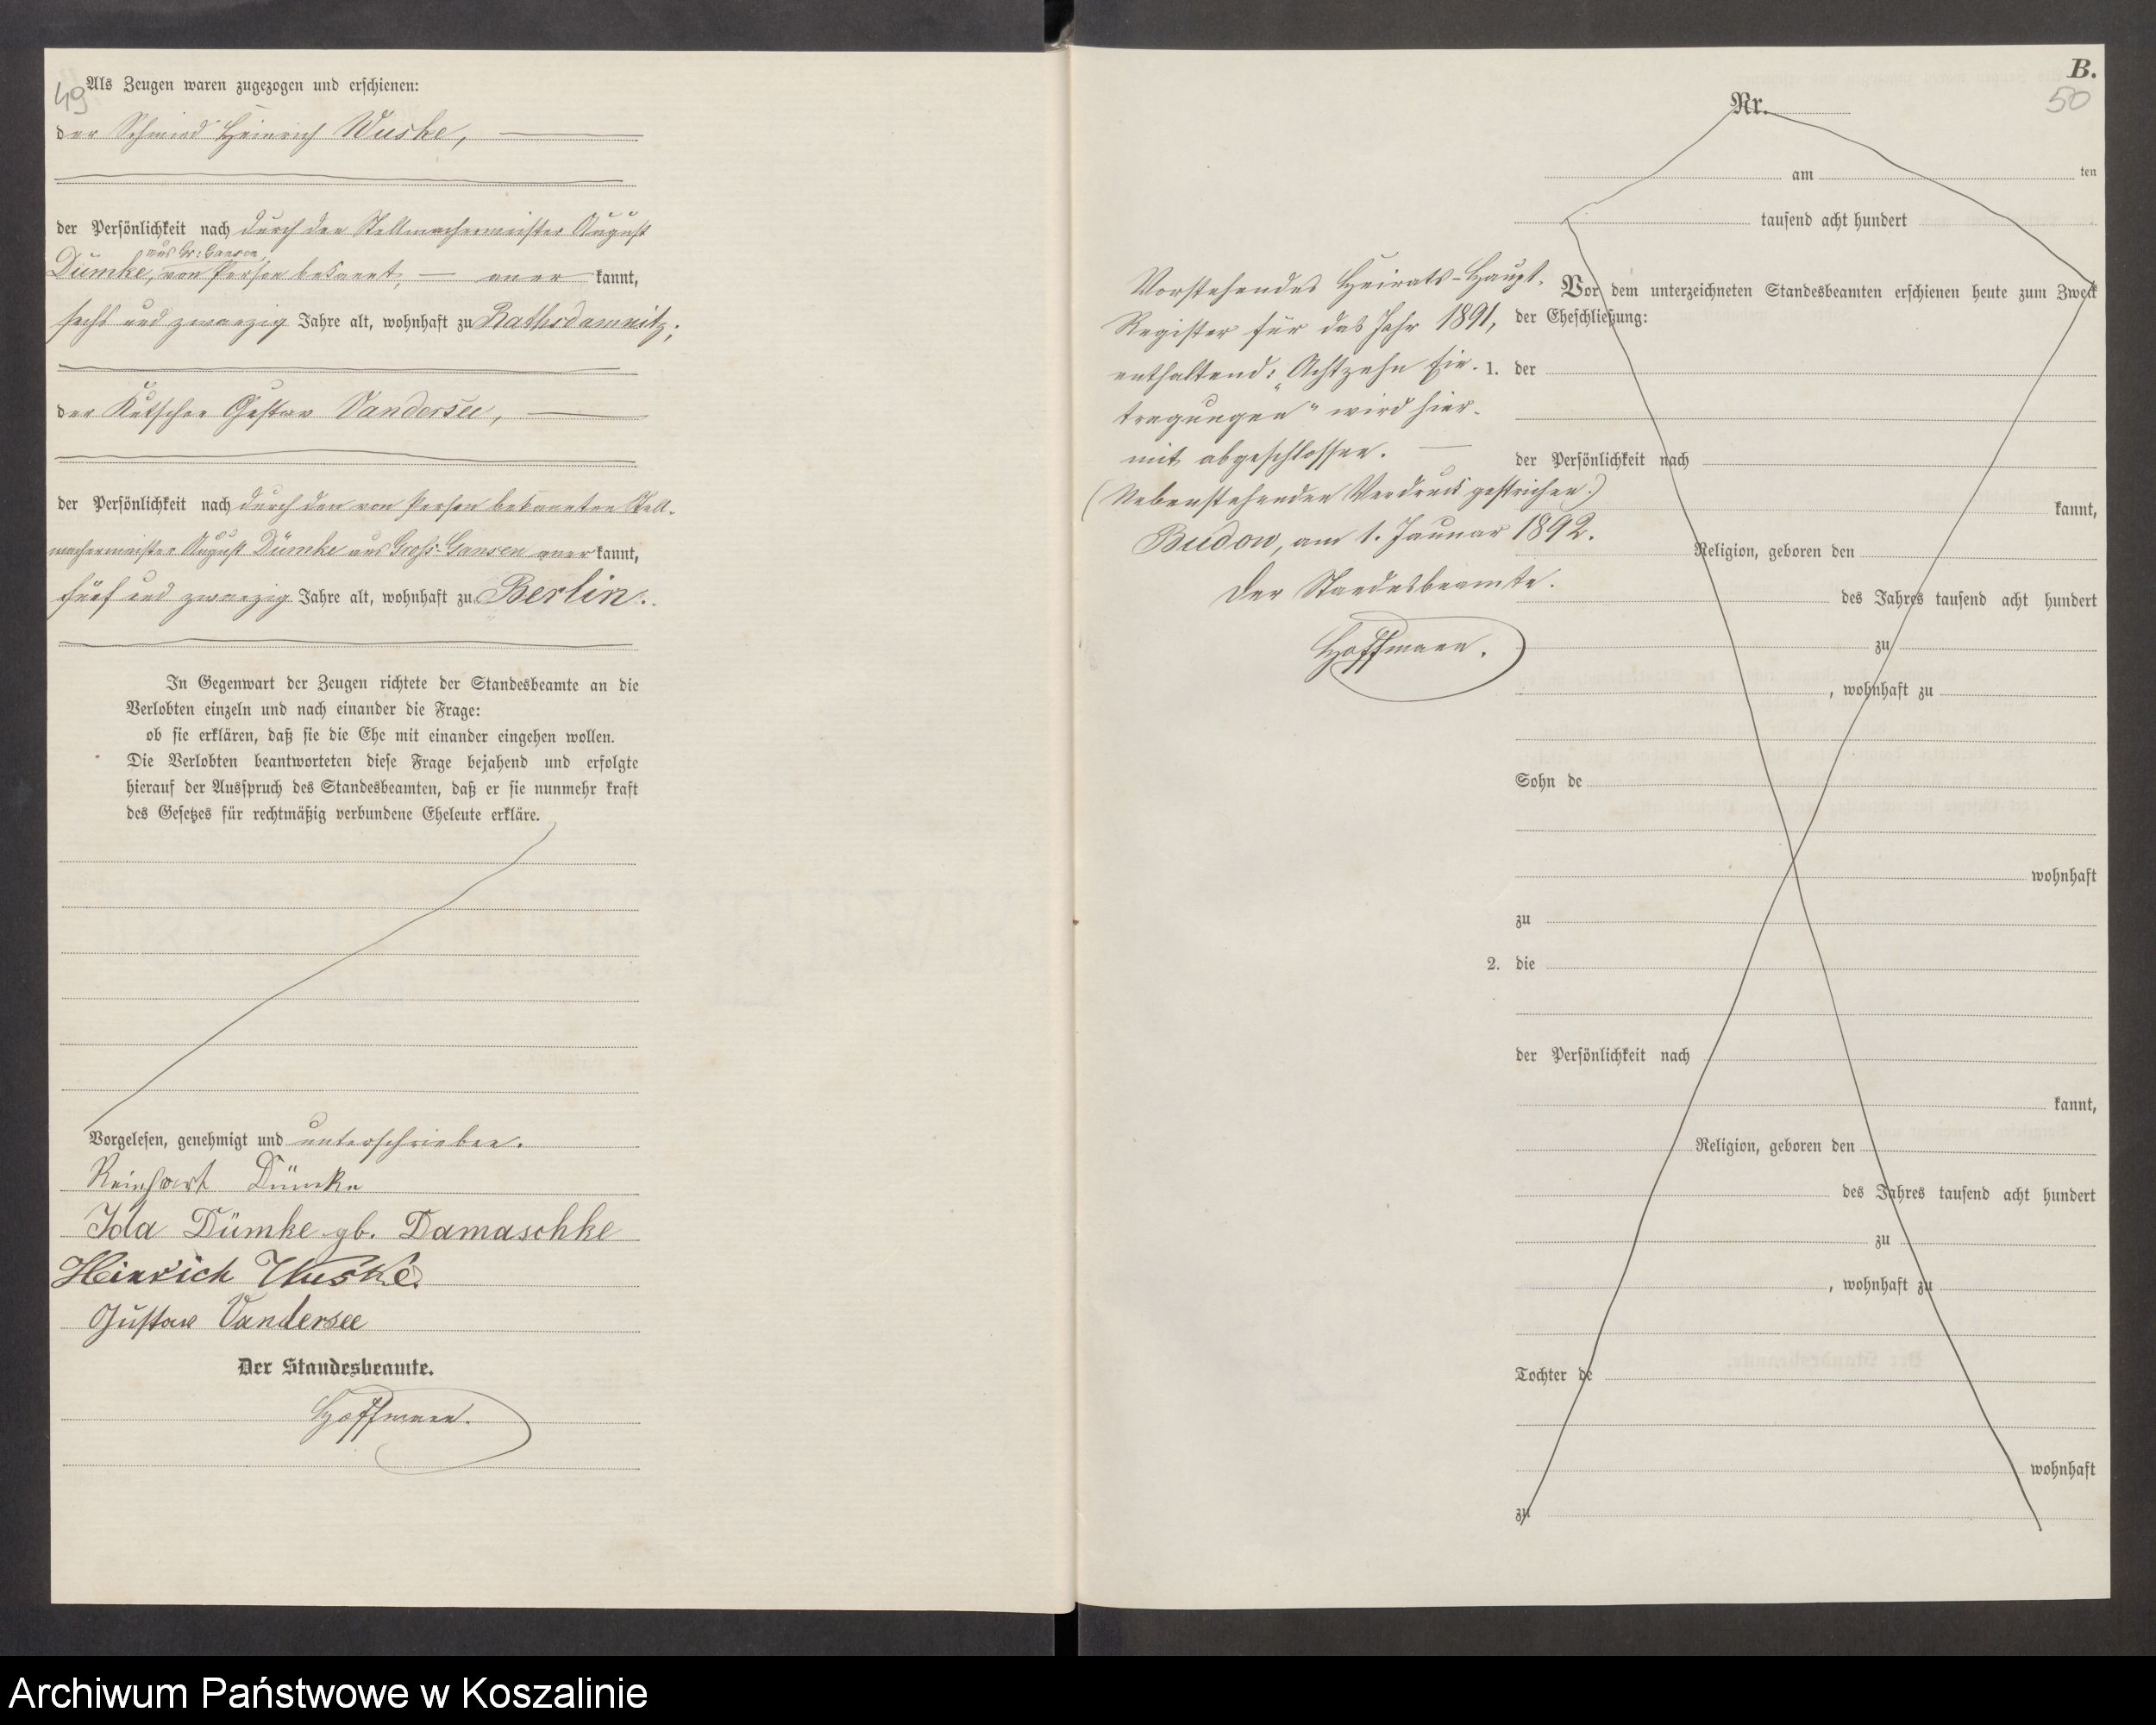 49
Als Zeugen waren zugezogen und erschienen:
der Schmied Heinrich Wuske,
der Persönlichkeit nach durch den Stellmachermeister August
aus Gr: Gansen,
Dümke, von Person bekannt, — aner kannt,
sechs und zwanzig Jahre alt, wohnhaft zu Rathsdamnitz;
der Kutscher Gustav Vandersee,
der Persönlichkeit nach durch den von Person bekannten Stell-
machermeister August Dümke aus Groß-Gansen aner kannt,
fünf und zwanzig Jahre alt, wohnhaft zu Berlin.
In Gegenwart der Zeugen richtete der Standesbeamte an die
Verlobten einzeln und nach einander die Frage:
ob sie erklären, daß sie die Ehe mit einander eingehen wollen.
Die Verlobten beantworteten diese Frage bejahend und erfolgte
hierauf der Ausspruch des Standesbeamten, daß er sie nunmehr kraft
des Gesetzes für rechtmäßig verbundene Eheleute erkläre.
Vorgelesen, genehmigt und unterschrieben.
Reinhart Dümke
Ida Dümke gb. Damaschke
Heinrich Wuske
Gustav Vandersee
Der Standesbeamte.
Hoffmann.
B.
50
Nr.
am ten
tausend acht hundert
Vorstehendes Heirats-Haupt-
Register für das Jahr 1891,
enthaltend: „Achtzehn Ein-
tragungen" wird hier-
mit abgeschlossen. —
(Nebenstehenden Vordruck gestrichen.)
Budow, am 1. Januar 1892.
Der Standesbeamte.
Hoffmann.
Vor dem unterzeichneten Standesbeamten erschienen heute zum Zweck
der Eheschließung:
1. der
der Persönlichkeit nach
kannt,
Religion, geboren den
des Jahres tausend acht hundert
zu
, wohnhaft zu
Sohn de
wohnhaft
zu
2. die
der Persönlichkeit nach
kannt,
Religion, geboren den
des Jahres tausend acht hundert
zu
, wohnhaft zu
Tochter de
wohnhaft
zu
Archiwum Państwowe w Koszalinie